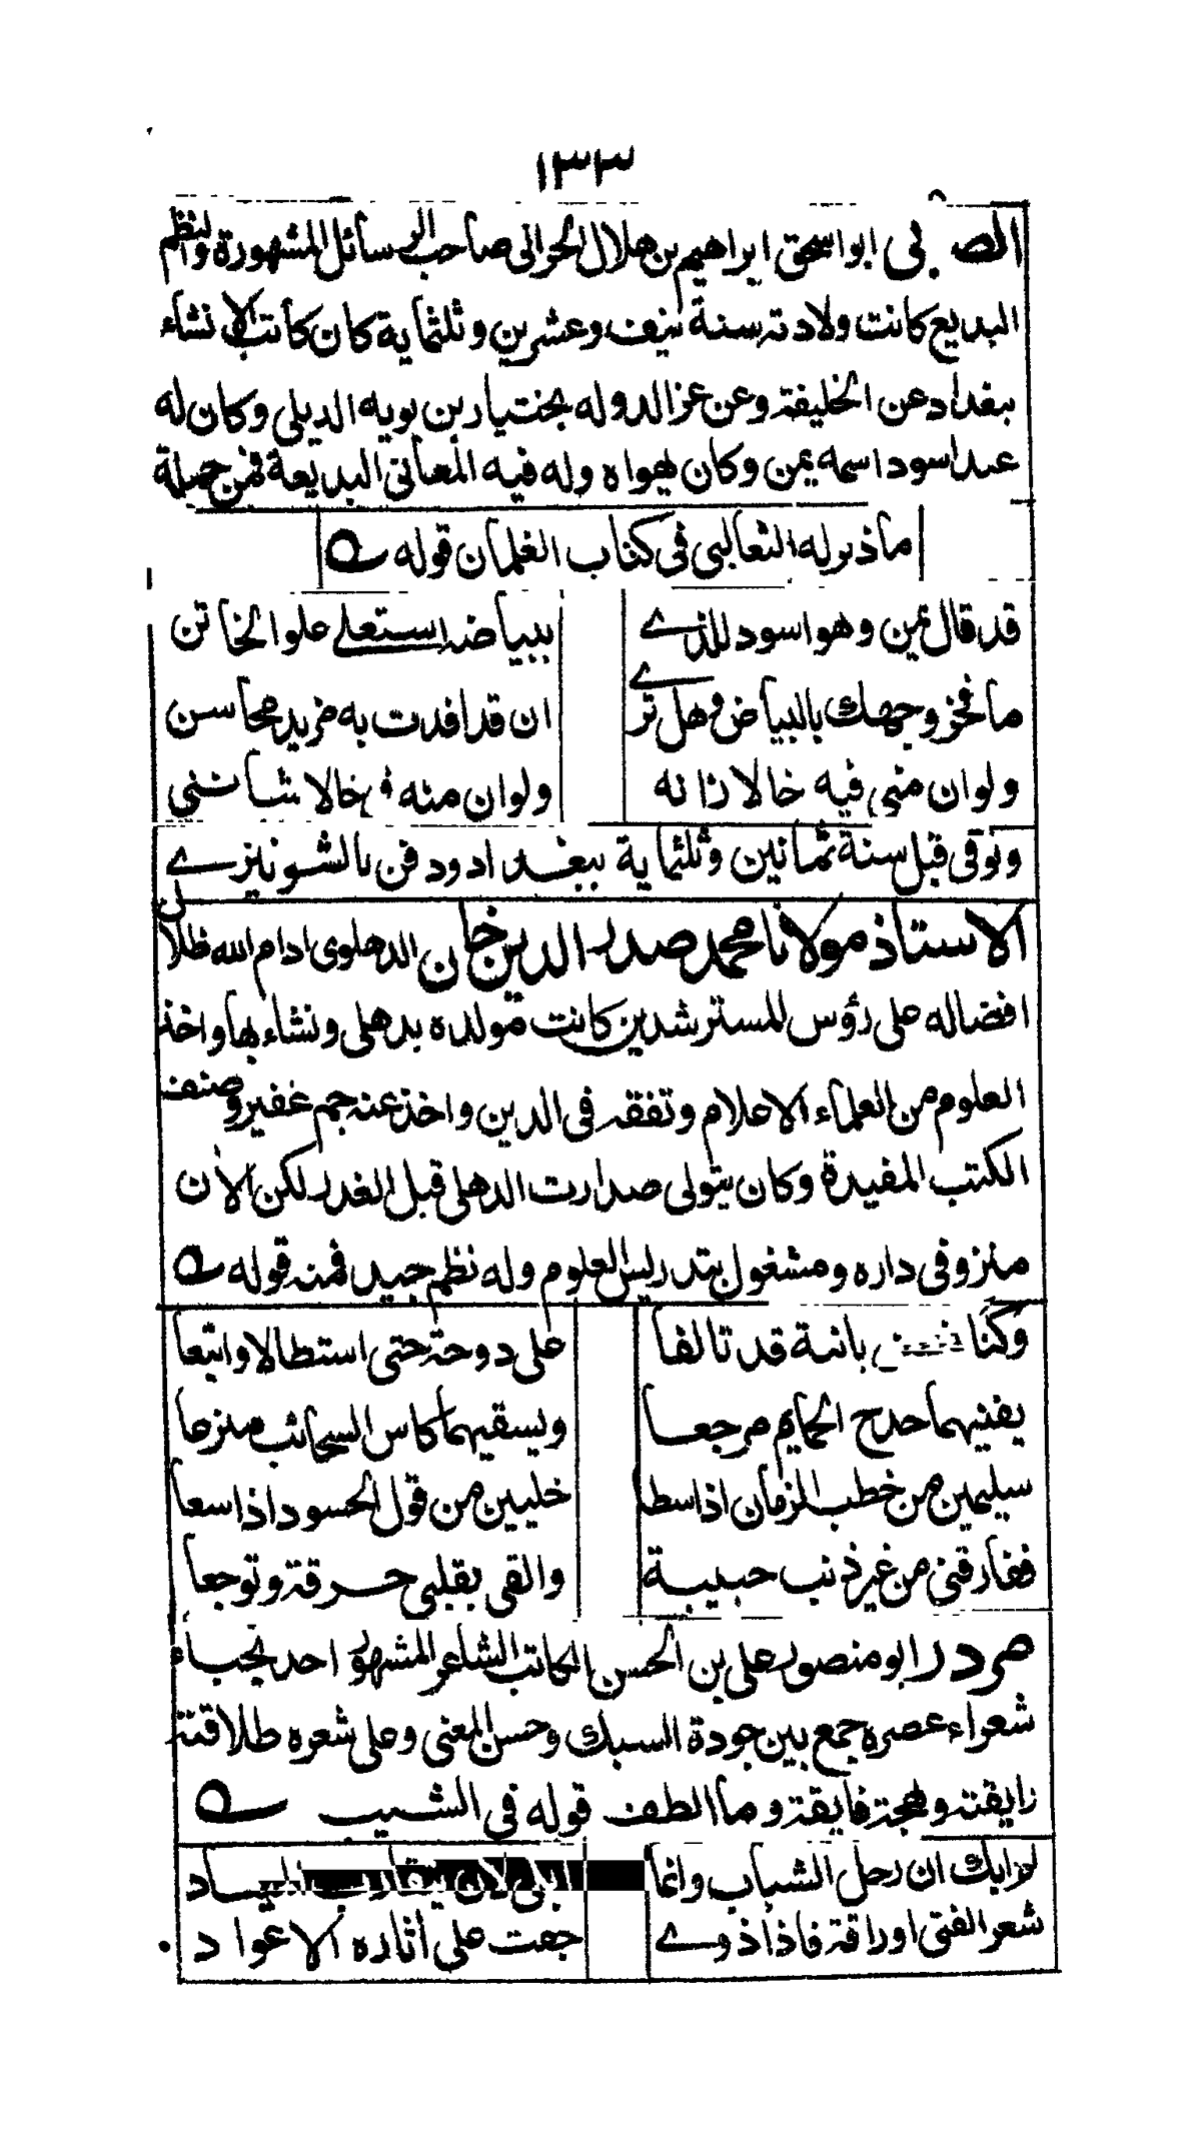 ١٣٣
الصابى ابواسحق ابراهيم بن هلال الحرانى صاحب الرسائل المشهورة والنظم
البديع كانت ولادته سنة نيف وعشرين وثلثماية كان كاتب الانشاء
ببغداد عن الخليفة وعن عزالدوله بختيار بن بويه الديلمى وكان له
عبد اسود اسمه يمن وكان يهواه وله فيه المعانى البديعة فمن جملة
ماذكرله الثعالبى فى كتاب الغلمان قوله
قد قال يمن وهو اسود للذے ببياضه استعلے علو الخاتن
ما فخر وجهك بالبياض وهل ترے ان قد افدت به مزيد محاسن
ولو ان منى فيه خالا زانه ولو ان منه فى خالا شاننى
وتوفى قبل سنة ثمانين وثلثماية ببغداد ودفن بالشونيزے
الاستاذ مولانا محمد صدر الدين خان الدهلوى ادام الله ظلال
افضاله على رؤس المسترشدين كانت تولده بدهلى ونشاء بها واخذ
العلوم من العلماء الاعلام وتفقه فى الدين واخذ عنه جم غفير وصنف
الكتب المفيدة وكان يتولى صدارت الدهلى قبل الغدر لكن الان
منزو فى داره ومشغول بتدريس العلوم وله نظم جيد فمنه قوله
وكنا بانة قد تالفا على دوحة حتى استطالا وايتعا
يغنيهما صدح الحمايم مرجعا ويسقيهما كاس السحائب منزعا
سليمين من خطب الزمان اذا سطا خليين من قول الحسود اذا سعا
ففارقنى من غير ذنب حبيبة والقى بقلبى حرقة وتوجعا
صردر ابو منصور على بن الحسن الكاتب الشاعر المشهور احد نجباء
شعراء عصره جمع بين جودة السبك وحسن المعنى وعلى شعره طلاقة
رايقة وبهجة فايقة وما الطف قوله فى الشيب
لم ابك ان رحل الشباب وانما ابكى لان يتقارب الميعاد
شعر الفتى اوراقة فاذا ذوے جفت على آثاره الاعواد